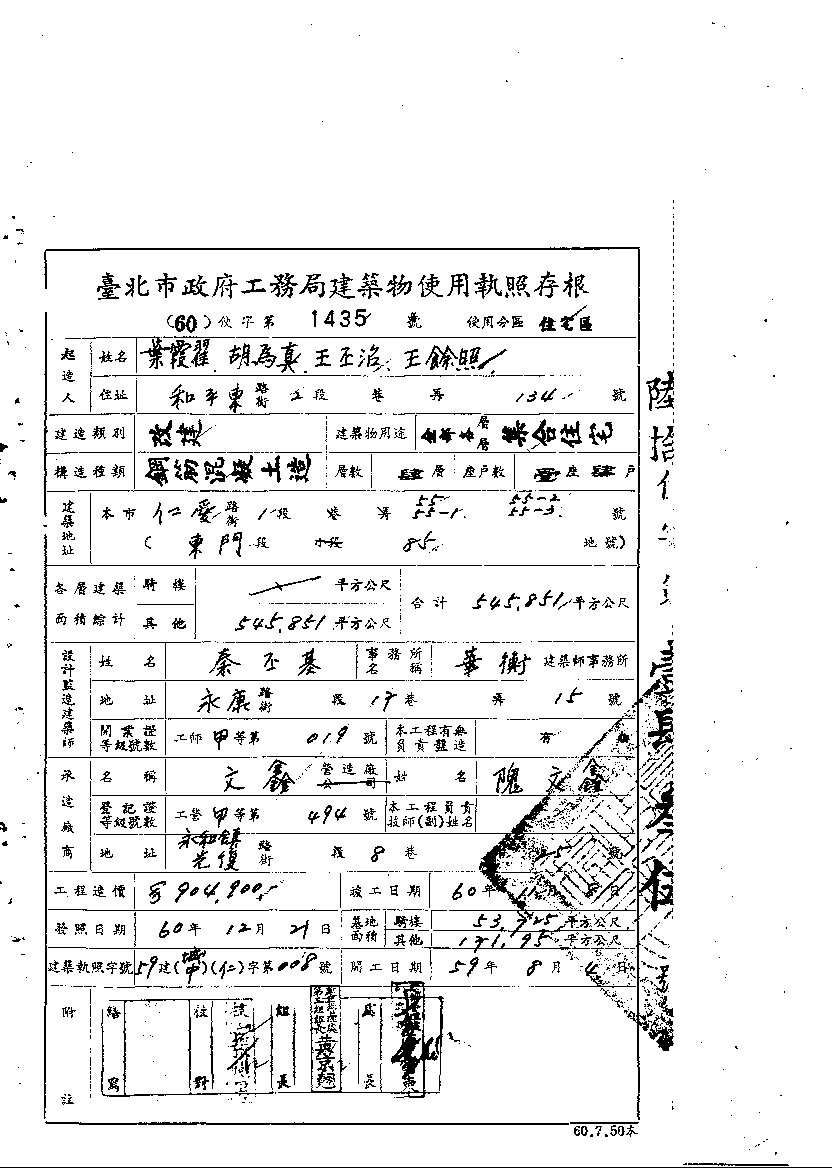 臺北市政府工務局建築物使用執照存根
(60)使字第 1435 號 使用分區 住宅區
起造人 姓名 葉霞翟 胡為真 王丕治 王餘照
住址 和平東 路街 段 巷 弄 134 號
建造類別 改建 建築物用途 全部各層層 集合住宅
構造種類 鋼筋混凝土造 層數 肆層 座戶數 壹座 肆戶
建築地址 本市 仁愛 路街 1段 巷 弄 55 55-1 55-2 55-3 號
(東門段 小段 85 地號)
各層建築面積綜計 騎樓 平方公尺 合計 545.851 平方公尺
其他 545.851 平方公尺
設計監造建築師 姓名 秦丕基 事務所名稱 華衡 建築師事務所
地址 永康 路街 段 17巷 弄 15 號
開業證等級號數 工師 甲 等第 019 號 本工程有無負責監造 有
承造廠商 名稱 文鑫 營造廠公司 姓名 隗文鑫
登記證等級號數 工營 甲 等第 494 號 本工程負責技師(副)姓名
地址 永和鎮光復 路街 段 8 巷 號
工程造價 904,900 竣工日期 60年 月 8日
發照日期 60年 12月 21日 基地面積 騎樓 53.725 平方公尺
其他 171.95 平方公尺
建築執照字號 59建( )(仁)字第008號 開工日期 59年 8月 4日
附註 繕寫 校對 組長 局長
黃京翹
60.7.50本